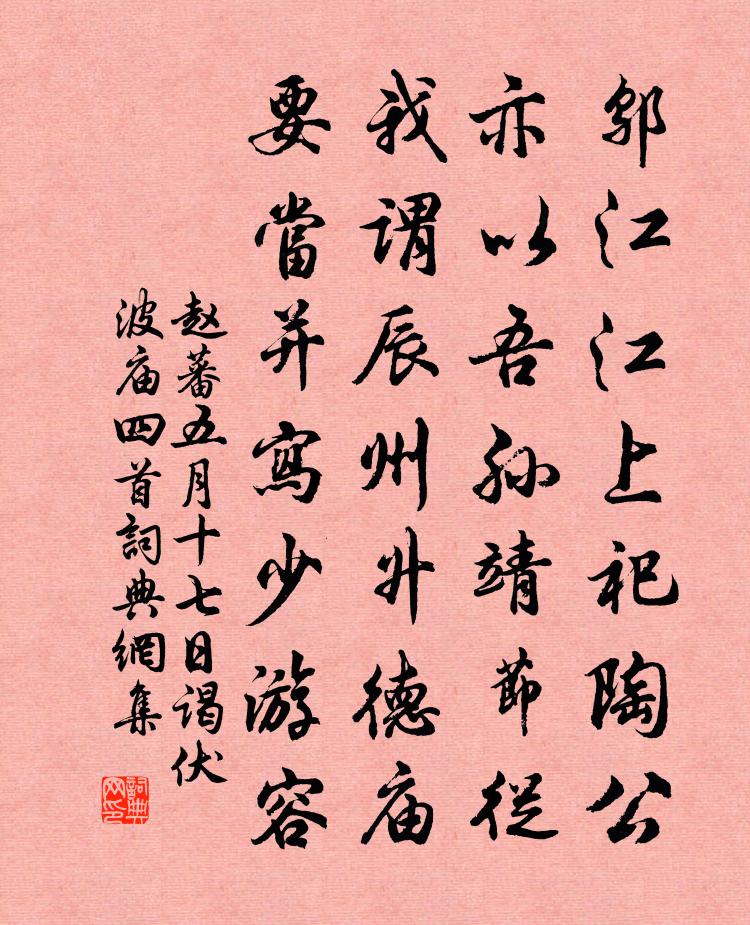 江江上祀陶公
亦以吾孙靖節從
我謂辰州升德庙
要當并寫少游容
赵蕃五月十七日谒伏
波庙四首詞典網集
詞典网印